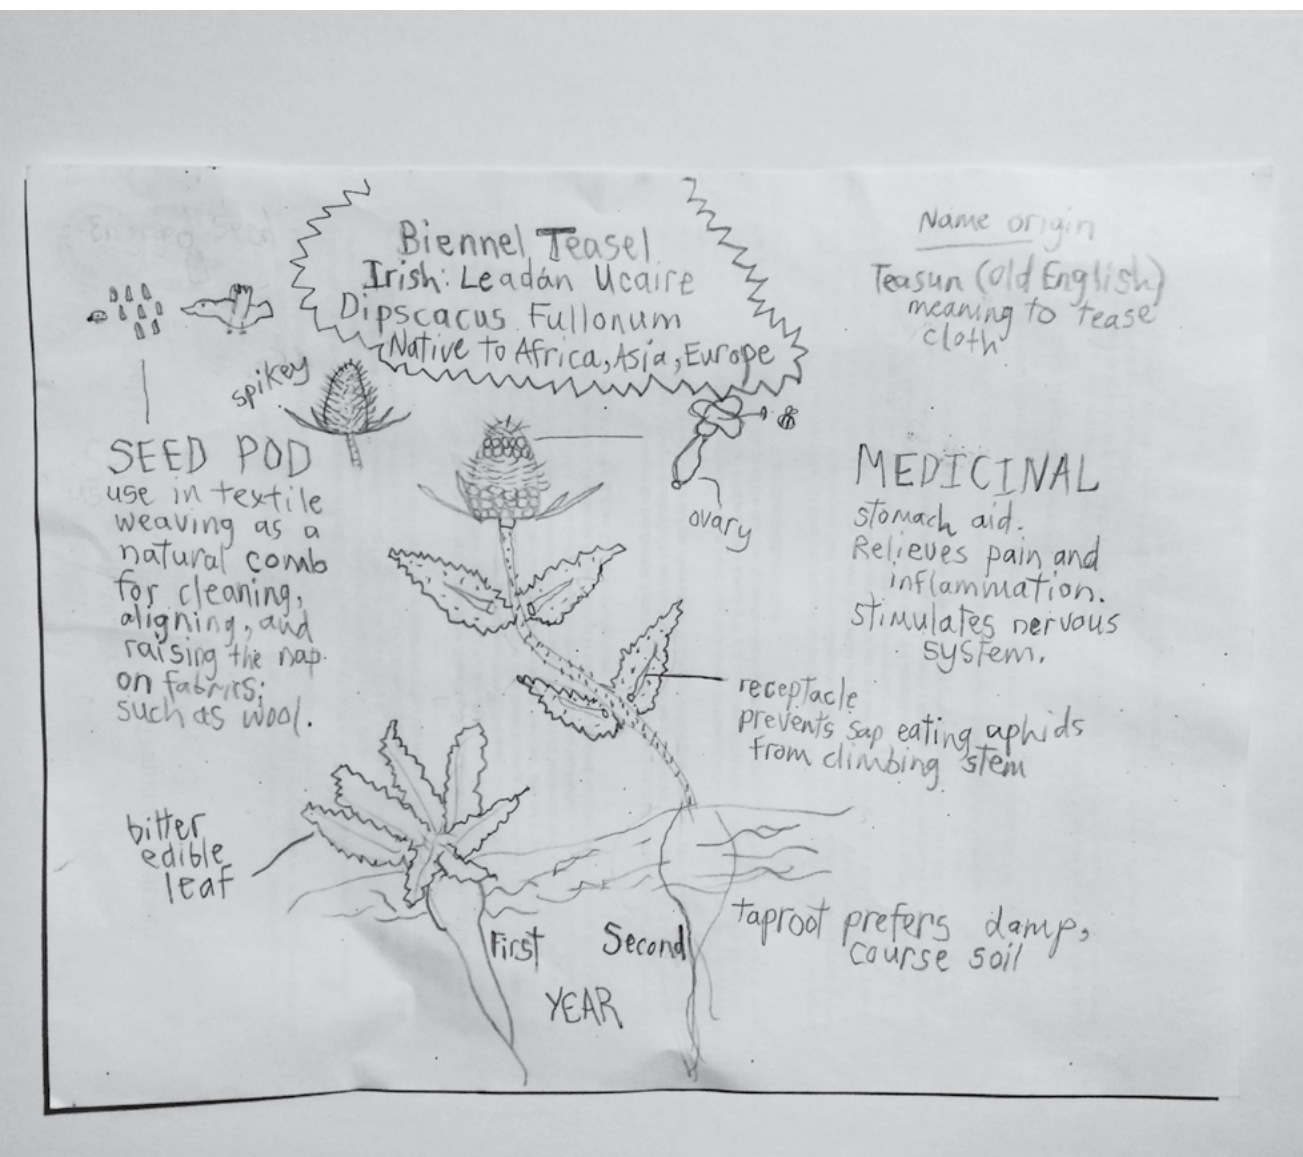 Biennel Teasel
Irish: Leadán Ucaire
Dipscacus Fullonum
Native to Africa, Asia, Europe
Name origin
Teasun (Old English)
meaning to tease
cloth
spikey
SEED POD
use in textile
weaving as a
natural comb
for cleaning,
aligning, and
raising the nap
on fabrics;
such as wool.
ovary
MEDICINAL
stomach aid.
Relieves pain and
inflammation.
stimulates nervous
system.
receptacle
prevents sap eating aphids
from climbing stem
bitter
edible
leaf
First Second
YEAR
taproot prefers damp,
course soil